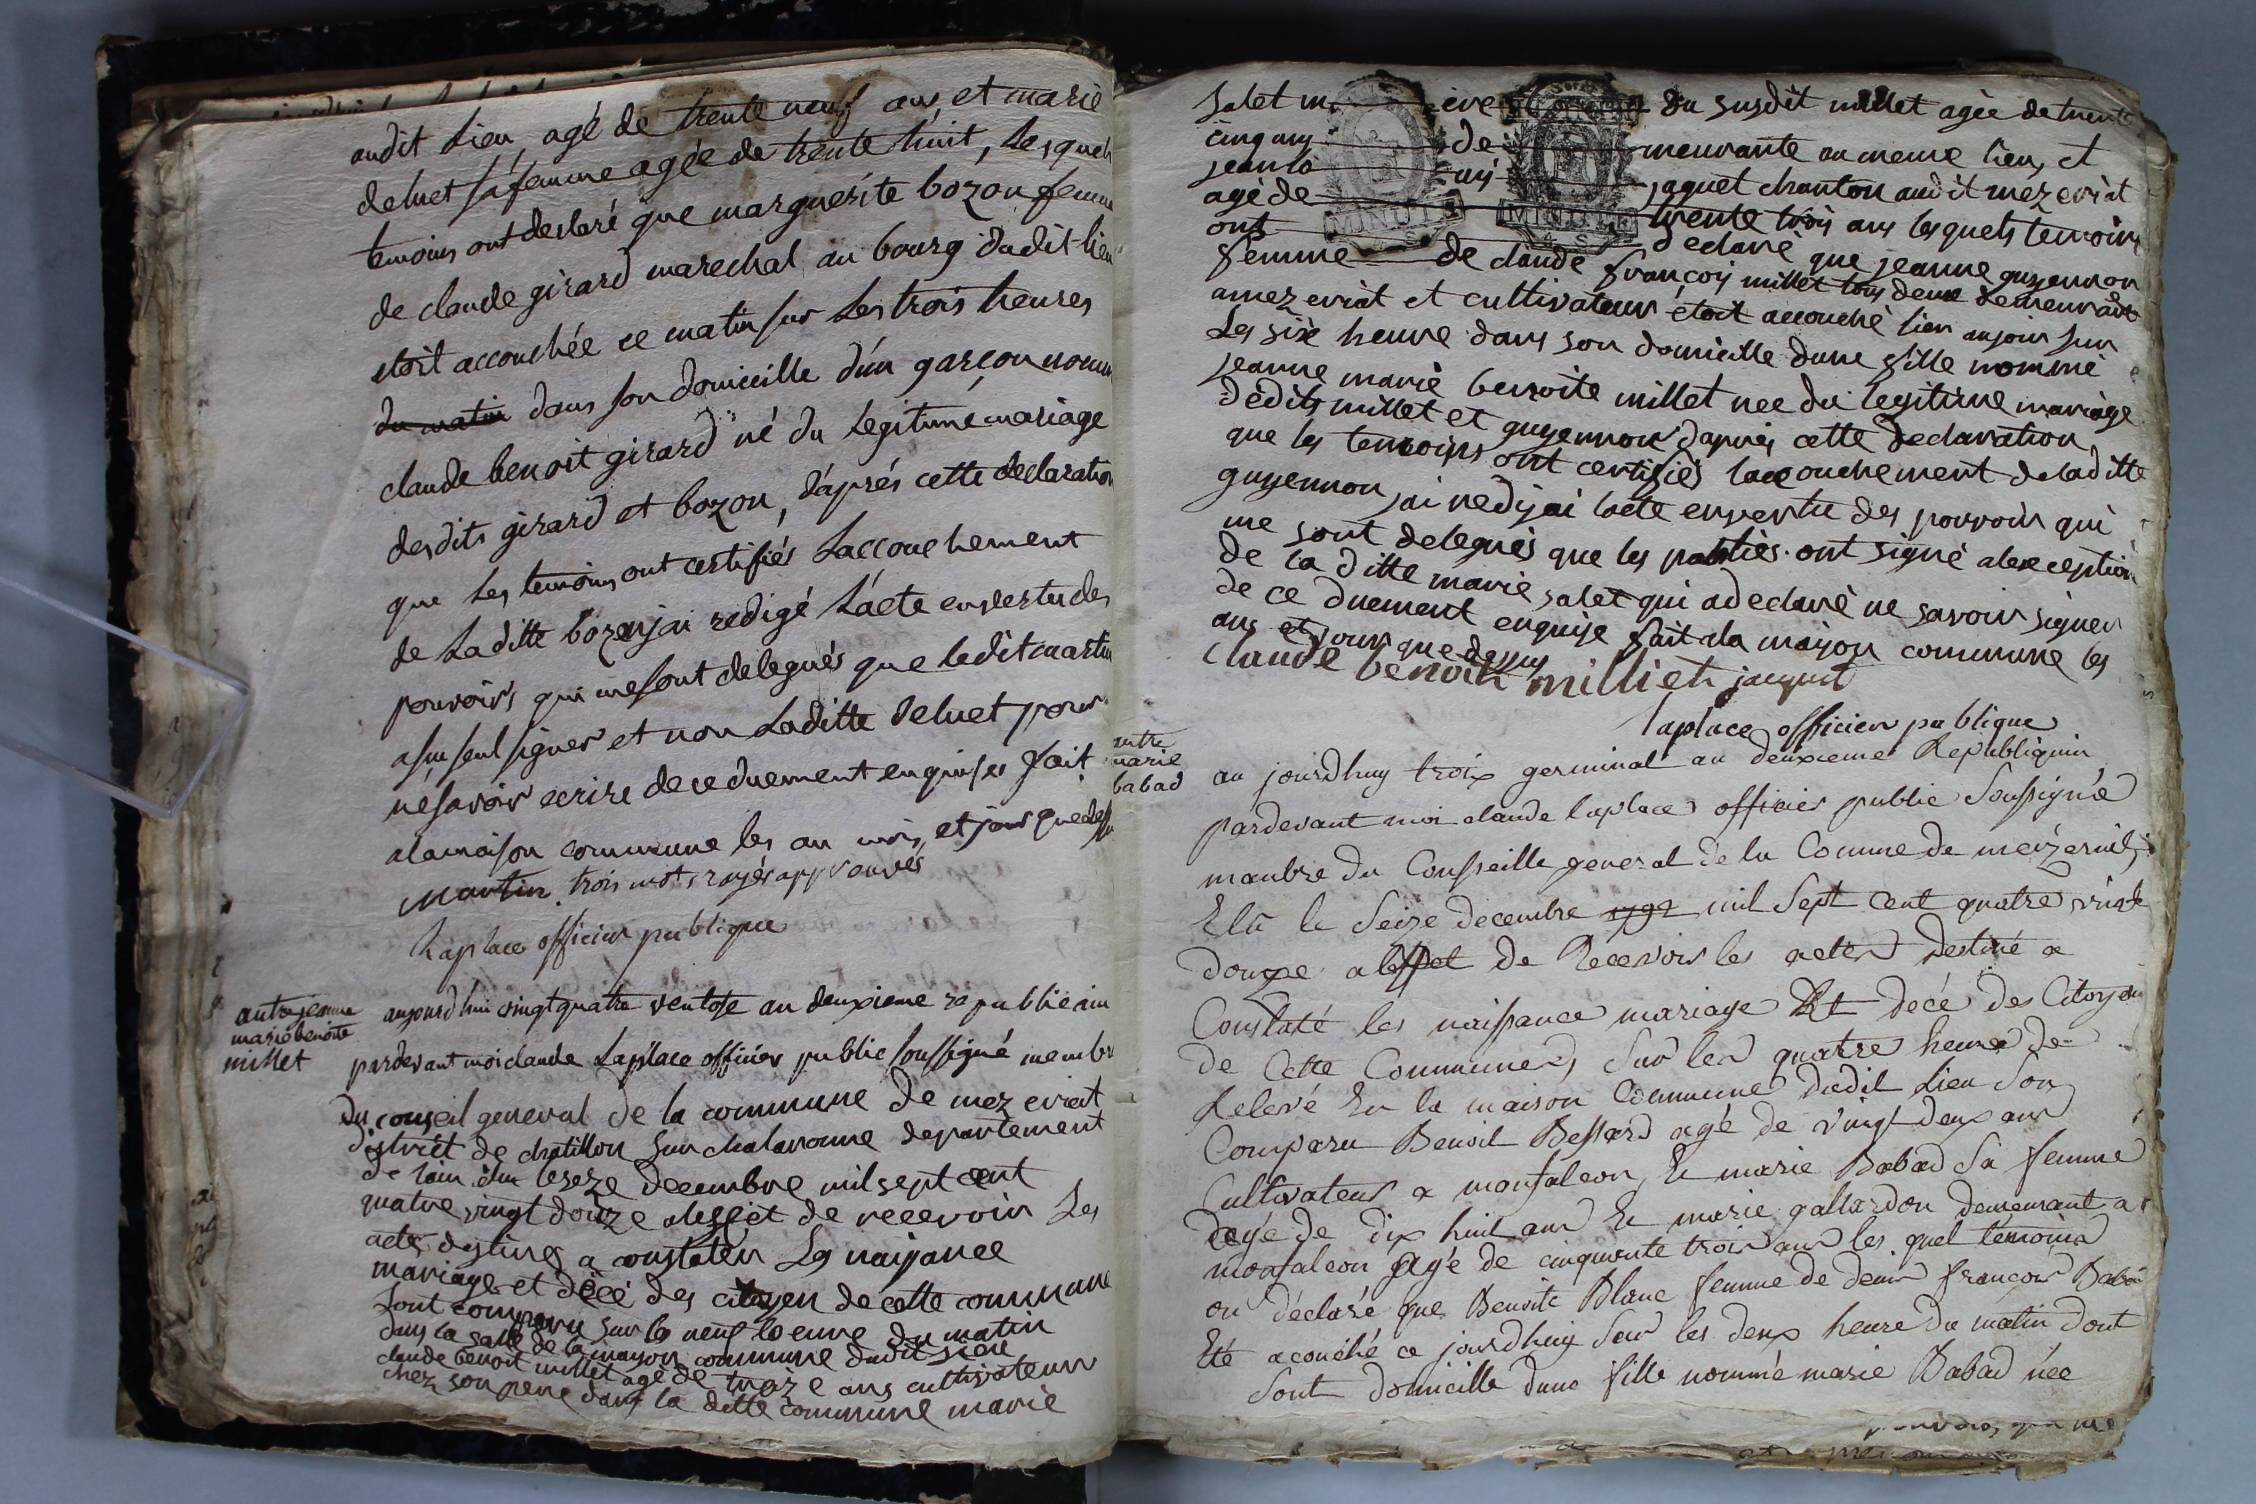 audit Lieu, agé de trente neuf ans, et marie
deluet sa femme agée de trente huit, Lesquels
temoins ont declaré que marguerite bozon femme
de claude girard marechal au bourg dudit lieu
etoit accouchée ce matin sur Les trois heures
du matin dans son domicille d'un garçon nommé
claude benoit girard né du Legitime mariage
desdits girard et bozon, d'après cette declaration
que Les temoins ont certifiés L'accouchement
de Laditte bozon jai redigé L'acte en vertu des
pouvoirs qui me sont delegués que ledit martin
a sçu seul signer et non Laditte deluet pour
ne savoir ecrire de ce duement enquises fait
a la maison commune les an mois et jour que dessus
martin trois mots rayés approuvés
Laplace officier publique
autre jeanne
marie benoite
millet
aujourd'hui vingt quatre ventose an deuxieme republicain
pardevant moi claude Laplace officier public soussigné membre
du conseil general de la commune de mezeriat
district de chatillon sur chalaronne departement
de lain elu le seze decembre mil sept cent
quatre vingt douze aleffet de recevoir Les
actes destines a constater Les naisance
mariage et décé des citoyen de cette commune
sont comparu sur les neuf heure du matin
dans la salle de la maison commune dudit lieu
claude benoit millet agé de treize ans cultivateur
chez son pere dans la ditte commune marie
salet m ere du susdit millet agée de trente
cinq ans de meurante au meme lieu, et
jean jaquet chanton audit mezeriat
agé de trente trois ans lesquels temoins
ont declaré que jeanne guyennon
femme de claude françois millet tous deux demeurant
a mezeriat et cultivateur etoit accouché hier au jour sur
Les six heure dans son domicille dune fille nommé
jeanne marie benoite millet nee du legitime mariage
dedits millet et guyennon daprès cette declaration
que les temoins ont certifiés laccouchement de laditte
guyennon jai redijai lacte en vertu des pouvoir qui
me sont delegués que les parties ont signé alexception
de la ditte marie salet qui a declaré ne savoir signer
de ce duement enquise fait ala maison commune les
ans et jour que dessus
claude benoit milliet jaquet
laplace officier publique
autre
marie
babad
au jourdhuy troix germinal an deuxieme Republiquin
pardevant moi claude laplace officier public soussigné
manbre du Conseille general de la Comune de meizeriat
Elu le Seize decembre 1792 mil Sept Cent quatre vingt
douze aleffet de Recevoir les actes destiné a
Constaté les naissance mariage Et decé des Citoyen
de Cette Commune, sur les quatre heure de
Relevé En la maison Commune dudit Lieu Son
Comparu Benoit Bessard agé de vingt deux ans
Cultivateur a monfaleon, Et marie Babad sa femme
agé de dix huit ans Et marie gallardon demeurant a
monfaleon agé de cinquante trois ans les quel temoins
on déclaré que Benoite Blanc femme de denis françois Babad
Eté acouché ce jourdhuy Sur les deux heure du matin dont
Sont domicille dune fille nommé marie Babad née